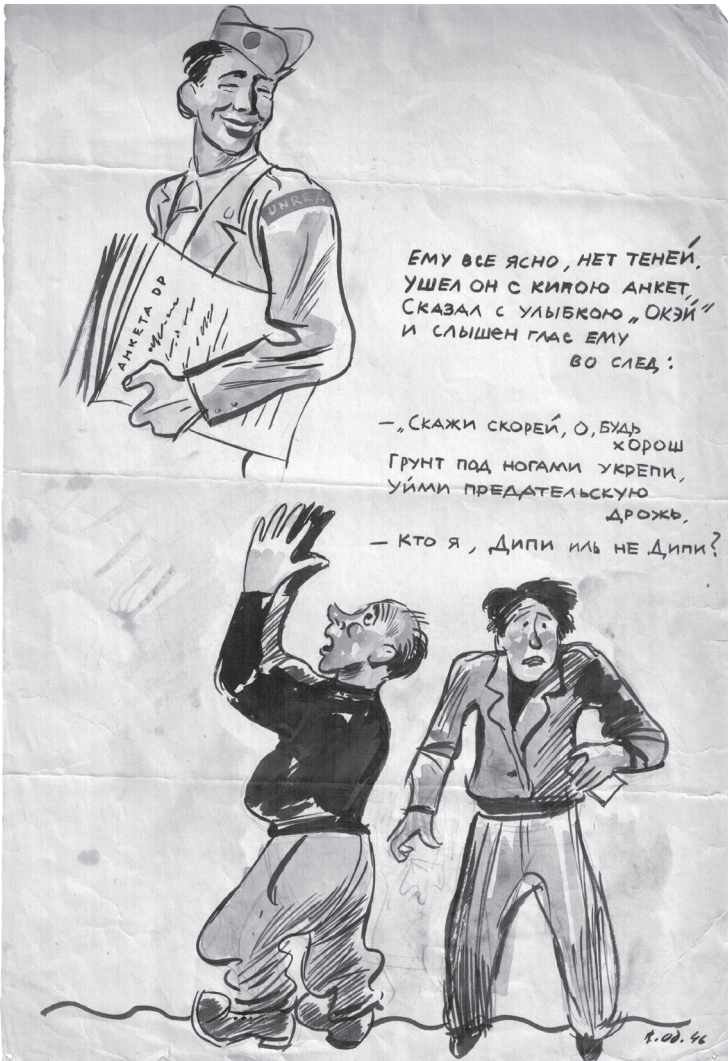 UNRRA
АНКЕТА DP
ЕМУ ВСЕ ЯСНО, НЕТ ТЕНЕЙ,
УШЕЛ ОН С КИПОЮ АНКЕТ,
СКАЗАЛ С УЛЫБКОЮ „ОКЭЙ"
И СЛЫШЕН ГЛАС ЕМУ
ВО СЛЕД:
— „СКАЖИ СКОРЕЙ, О, БУДЬ
ХОРОШ
ГРУНТ ПОД НОГАМИ УКРЕПИ,
УЙМИ ПРЕДАТЕЛЬСКУЮ
ДРОЖЬ,
— КТО Я, ДИПИ ИЛЬ НЕ ДИПИ?
46